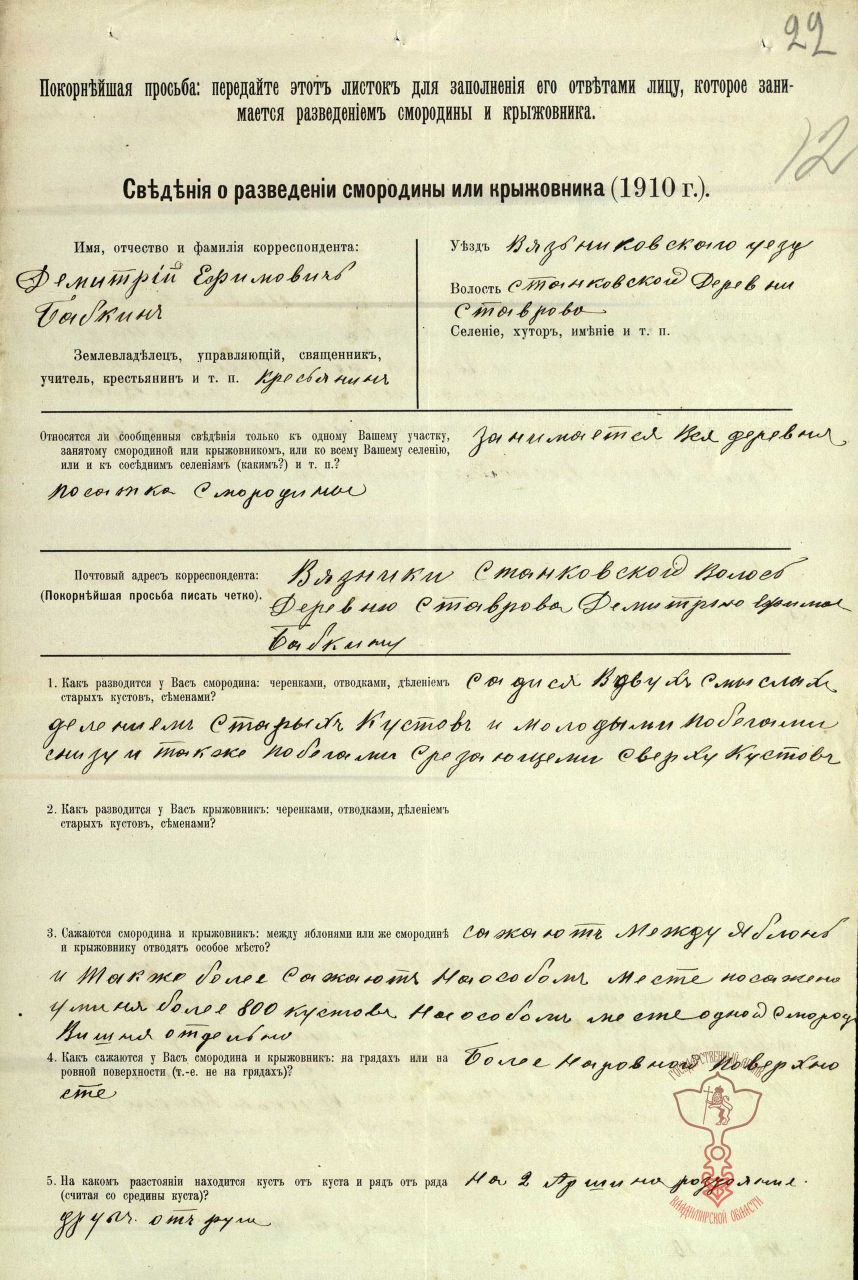 22
Покорнѣйшая просьба: передайте этотъ листокъ для заполненія его отвѣтами лицу, которое зани-
мается разведеніемъ смородины и крыжовника.
12
Свѣдѣнія о разведеніи смородины или крыжовника (1910 г.).
Имя, отчество и фамилія корреспондента:
Демитрій Ефимовичъ
Бабкинъ
Землевладѣлецъ, управляющій, священникъ,
учитель, крестьянинъ и т. п. Кресьянинъ
Уѣздъ Вязьниковскаго уезу
Волость Станковской Деревни
Ставрово
Селеніе, хуторъ, имѣніе и т. п.
Относятся ли сообщенныя свѣдѣнія только къ одному Вашему участку,
занятому смородиной или крыжовникомъ, или ко всему Вашему селенію,
или и къ сосѣднимъ селеніямъ (какимъ?) и т. п.?
занимается Вся деревня
посатка Смородиные
Почтовый адресъ корреспондента:
(Покорнѣйшая просьба писать четко).
Вязники Станковской Волось
Деревню Ставрова Демитрію
Бабкину
1. Какъ разводится у Васъ смородина: черенками, отводками, дѣленіемъ
старыхъ кустовъ, сѣменами?
Садися Вдвухъ Смыслахъ
делениемъ Старыхъ Кустовъ и молодыми побегами
снизу и также побегами Срезающеми Сверху Кустовъ
2. Какъ разводится у Васъ крыжовникъ: черенками, отводками, дѣленіемъ
старыхъ кустовъ, сѣменами?
3. Сажаются смородина и крыжовникъ: между яблонями или же смородинѣ
и крыжовнику отводятъ особое мѣсто?
сажаютъ Между Яблонь
и Также более Сажаютъ Наособомъ Месте посажено
уминя более 800 кустовъ Наособомъ месте одной Смород
Вишня отдельно
4. Какъ сажаются у Васъ смородина и крыжовникъ: на грядахъ или на
ровной поверхности (т.-е. не на грядахъ)?
Более Наровной поверхно
сте
5. На какомъ разстояніи находится кустъ отъ куста и рядъ отъ ряда
(считая со средины куста)?
На 2 Аршина
отъ
ГОСУДАРСТВЕННЫЙ АРХИВ
ВЛАДИМИРСКОЙ ОБЛАСТИ